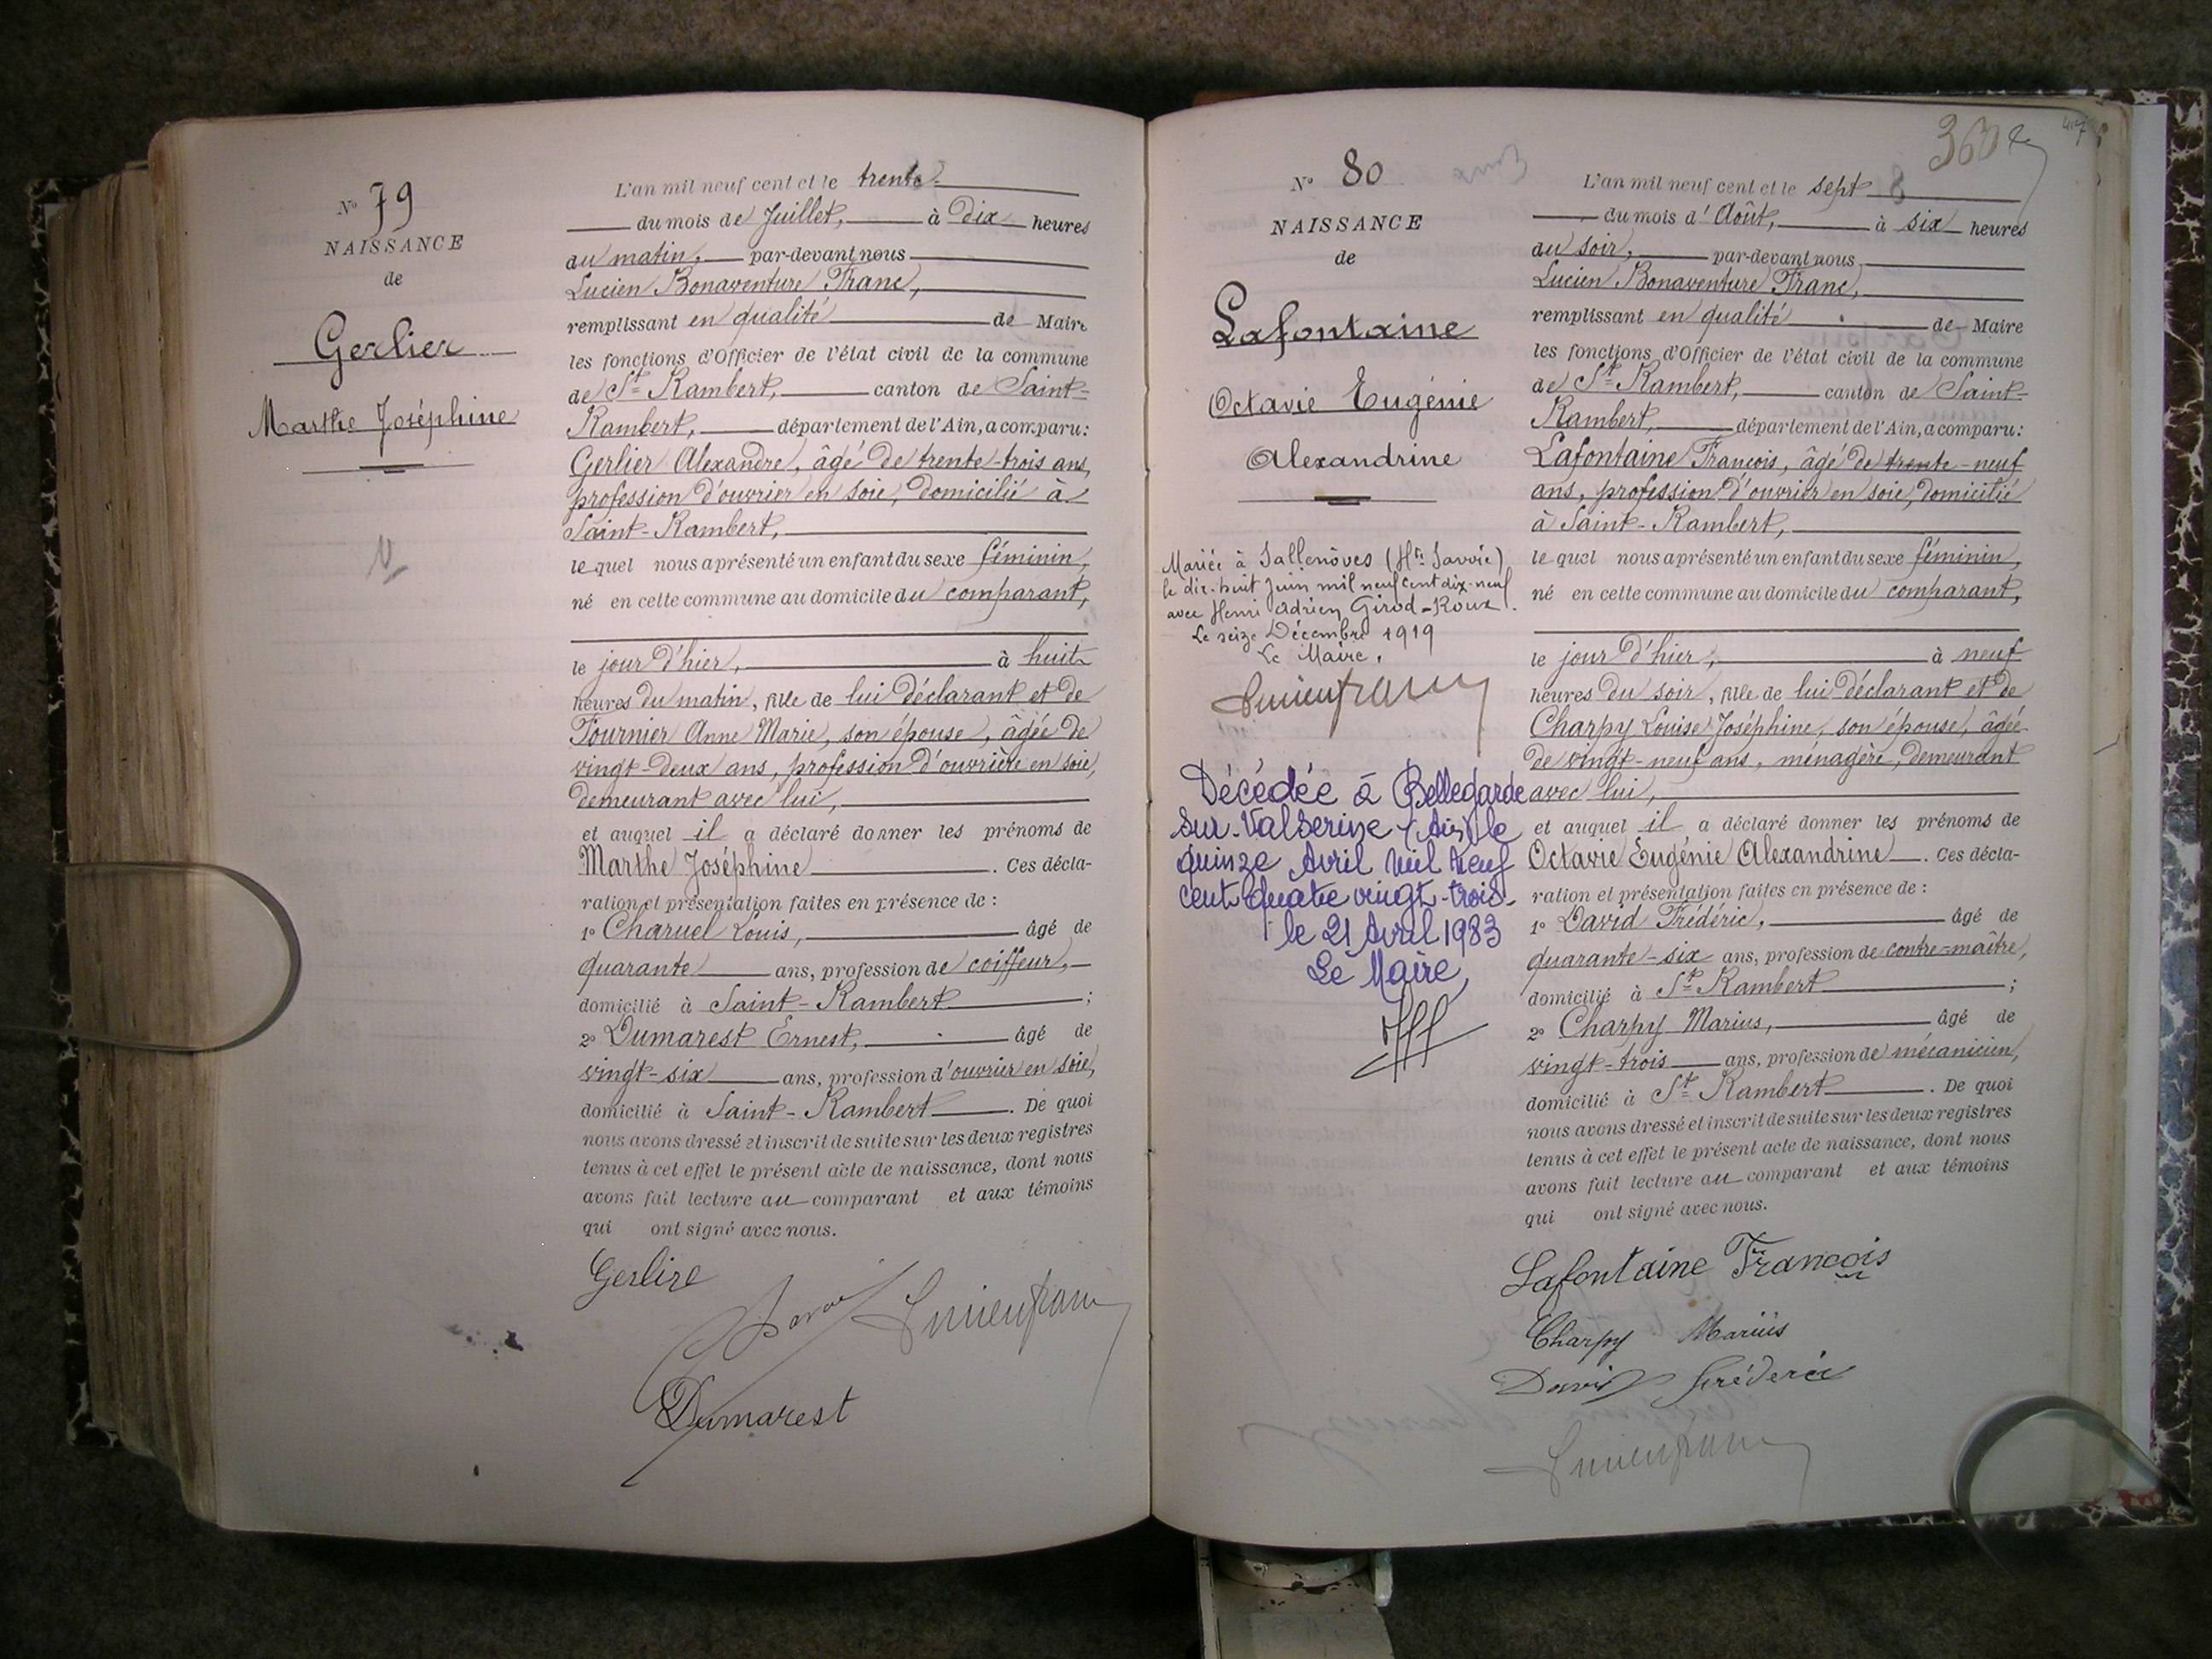 Nº 79
NAISSANCE
de
Gerlier
Marthe Joséphine
V
L'an mil neuf cent et le trente
du mois de Juillet, à Dix heures
du matin, par-devant nous
Lucien Bonaventure Franc,
remplissant en qualité de Maire
les fonctions d'Officier de l'état civil de la commune
de St Rambert, canton de Saint-
Rambert, département de l'Ain, a comparu:
Gerlier Alexandre, âgé de trente-trois ans,
profession d'ouvrier en soie, domicilié à
Saint-Rambert,
lequel nous a présenté un enfant du sexe féminin,
né en cette commune au domicile du comparant,
le jour d'hier, à huit
heures du matin, fille de lui déclarant et de
Fournier Anne Marie, son épouse, âgée de
vingt-deux ans, profession d'ouvrière en soie,
demeurant avec lui,
et auquel il a déclaré donner les prénoms de
Marthe Joséphine. Ces décla-
ration et présentation faites en présence de :
1º Charuel Louis, âgé de
quarante ans, profession de coiffeur,
domicilié à Saint-Rambert ;
2º Dumarest Ernest, âgé de
vingt-six ans, profession d'ouvrier en soie,
domicilié à Saint-Rambert. De quoi
nous avons dressé et inscrit de suite sur les deux registres
tenus à cet effet le présent acte de naissance, dont nous
avons fait lecture au comparant et aux témoins
qui ont signé avec nous.
Gerlire
Lucien franc
Dumarest
360
417
Nº 80
NAISSANCE
de
Lafontaine
Octavie Eugénie
Alexandrine
Mariée à Sallenôves (Hte Savoie)
le dix-huit Juin mil neuf cent dix-neuf
avec Henri Adrien Girod-Roux.
Le seize Décembre 1919
Le Maire,
Lucien franc
Décédée à Bellegarde
sur-Valserine (Ain) le
quinze Avril mil neuf
cent quatre vingt-trois
le 21 Avril 1983
Le Maire,
L'an mil neuf cent et le sept 8
du mois d'Août, à six heures
du soir, par-devant nous
Lucien Bonaventure Franc,
remplissant en qualité de Maire
les fonctions d'Officier de l'état civil de la commune
de St Rambert, canton de Saint-
Rambert, département de l'Ain, a comparu:
Lafontaine François, âgé de trente-neuf
ans, profession d'ouvrier en soie, domicilié
à Saint-Rambert,
lequel nous a présenté un enfant du sexe féminin,
né en cette commune au domicile du comparant,
le jour d'hier, à neuf
heures du soir, fille de lui déclarant et de
Charpy Louise Joséphine, son épouse, âgée
de vingt-neuf ans, ménagère, demeurant
avec lui,
et auquel il a déclaré donner les prénoms de
Octavie Eugénie Alexandrine. Ces décla-
ration et présentation faites en présence de :
1º David Frédéric, âgé de
quarante-six ans, profession de contre-maître,
domicilié à St Rambert ;
2º Charpy Marius, âgé de
vingt-trois ans, profession de mécanicien,
domicilié à St Rambert. De quoi
nous avons dressé et inscrit de suite sur les deux registres
tenus à cet effet le présent acte de naissance, dont nous
avons fait lecture au comparant et aux témoins
qui ont signé avec nous.
Lafontaine François
Charpy Mariüs
David Fréderic
Lucien franc